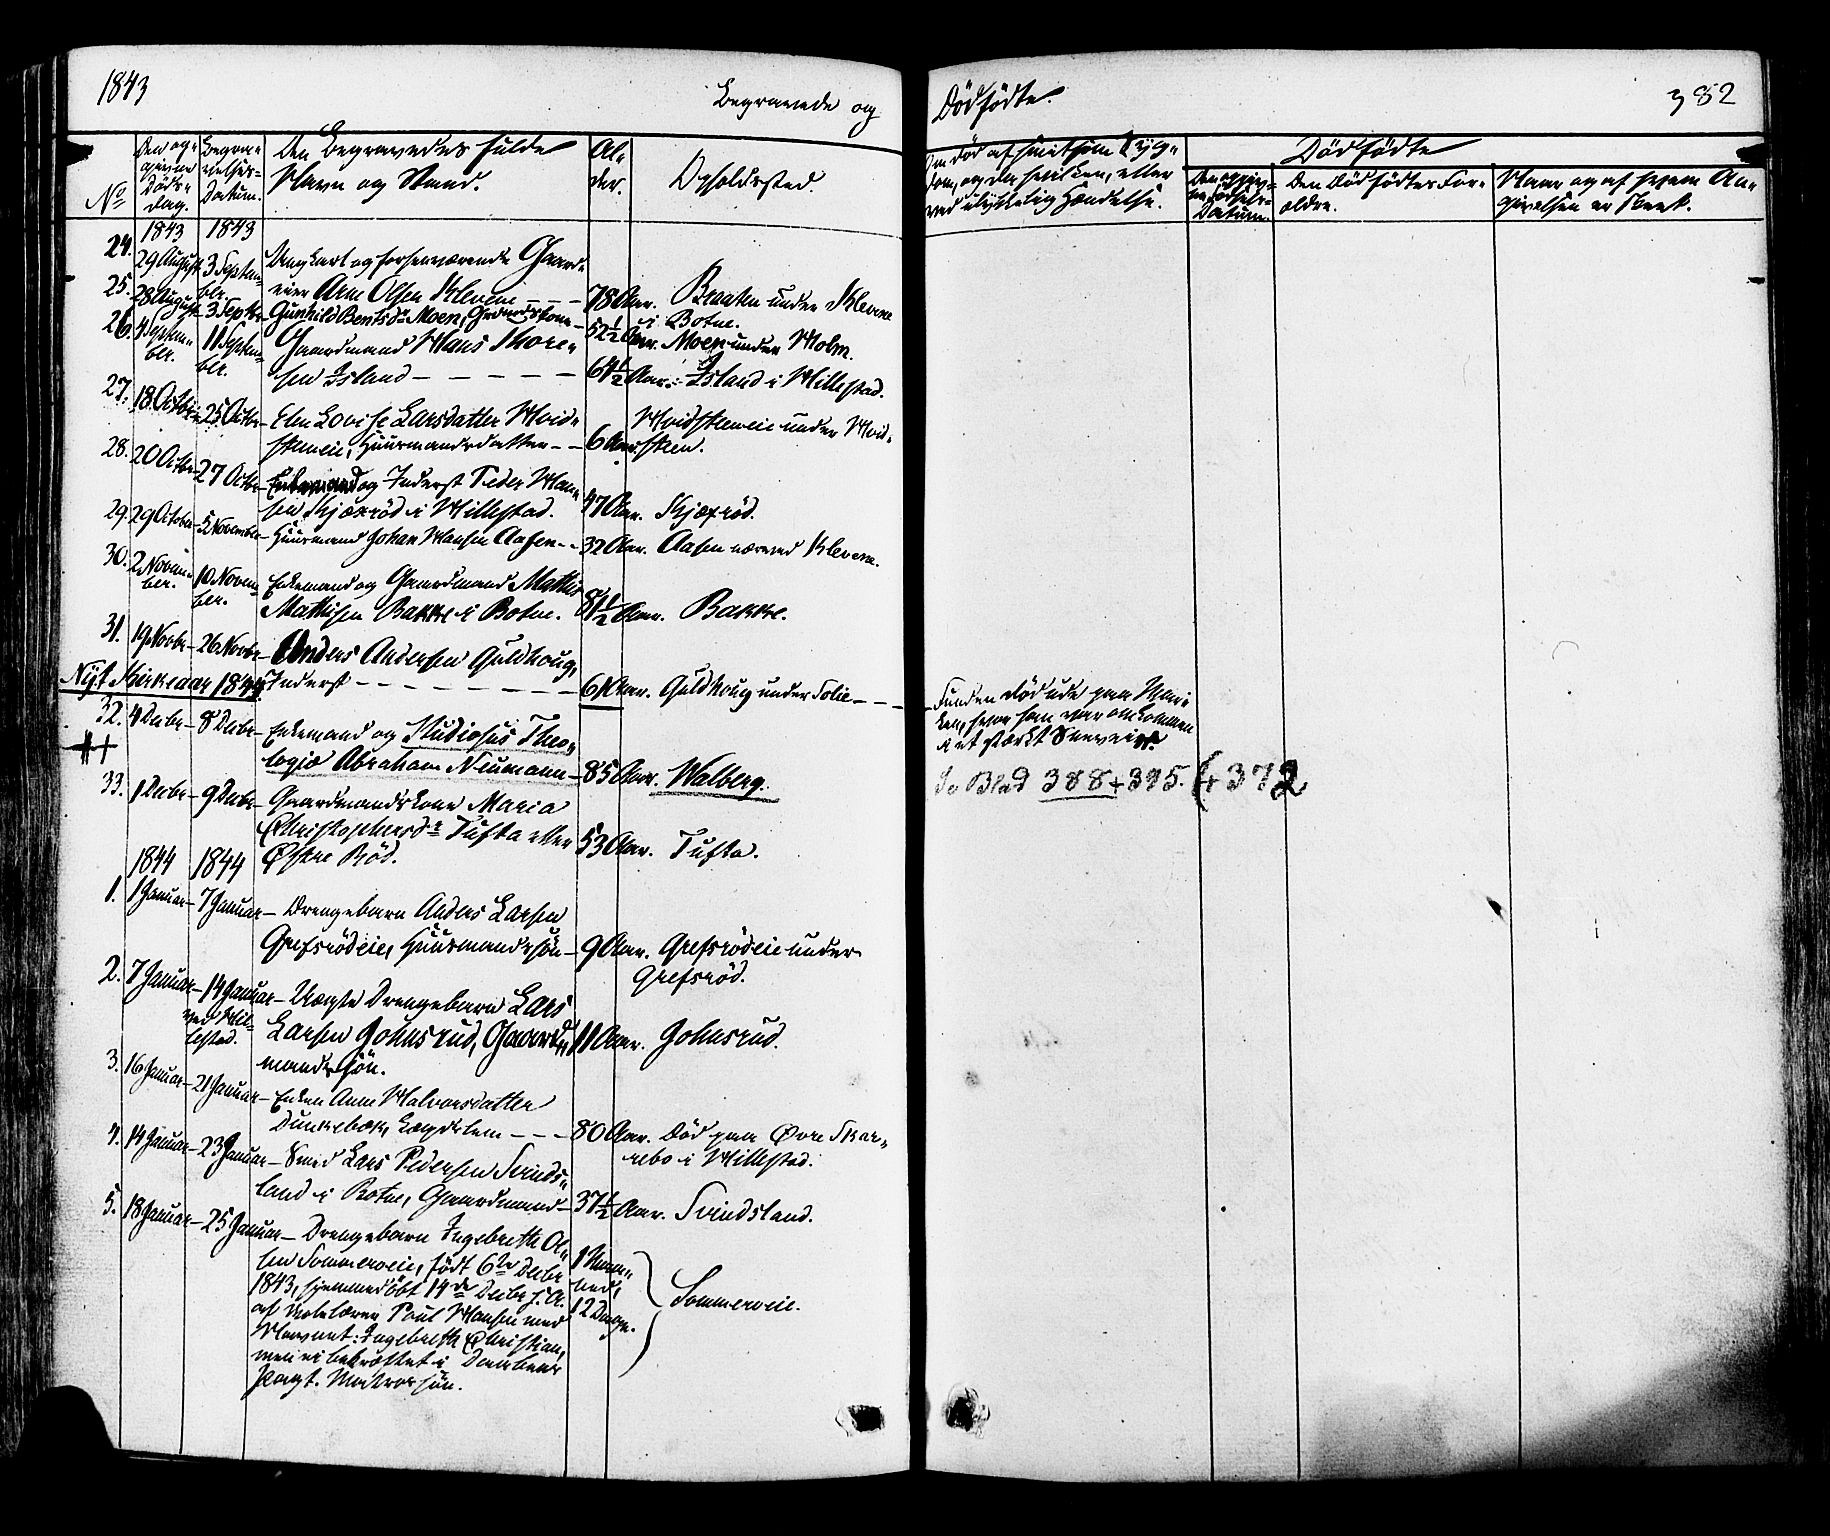 1843
Begravede og
Dödfödte.
382
No
Den og-
givne
Döds-
dag.
Begra-
velses-
Datum.
Den Begravedes fulde
Navn og Stand.
Al-
der.
Opholdssted.
Om död af smitsom Syg-
dom, og da hvilken, eller
ved ulykkelig Hændelse.
Dödfödte
Den opgiv-
ne Födsels-
Datum.
Den Dödfödtes For-
ældre.
Naar og af hvem An-
givelsen er skeet.
1843 1843
24. 29 August 3 Septem-
ber. Ungkarl og forhenværende Gaard-
eier Arne Olsen Klevene - - - 78 Aar. Braaten under Klevene
i Botne.
25. 28 August 3 Septbr Gunhild Bentsdr Moen, Grdmandskone - 52½ Aar. Moen under Holm.
26. 4 Septem-
ber. 11 Septem-
ber. Gaardmand Hans Thore-
sen Island - - - - - 64½ Aar. Island i Hillestad.
27. 18 Octbr 25 Octbr - Elen Lovise Larsdatter Hvid-
steneie, Huusmandsdatter - - 6 Aar. Hvidsteneie under Hvid-
steen.
28. 20 Octbr - 27 Octbr - Enkemand og Inderst Peder Han-
sen Skjærröd i Hillestad. 47 Aar. Skjærröd.
29. 29 October - 5 November - Huusmand Johan Hansen Aasen - - 32 Aar. Aasen nærved Klevene.
30. 2 Novem-
ber. 10 Novem-
ber. Enkemand og Gaardmand Mathis
Mathisen Bakke i Botne. 81½ Aar. Bakke.
31. 19 Novbr - 26 Novbr - Anders Andersen Guldhoug,
Inderst - - - - - - - 61 Aar. Guldhoug under Solie - - -
Funden död ude paa Mar-
ken, hvor han var omkommen
i et stærkt Sneveir.
Nyt Kirkeaar 1844
32. 4 Decbr - 8 Decbr - Enkemand og Studiosus Theo-
logiæ Abraham Neumann - 85 Aar. Walberg.
Se Blad 388 + 395. (+ 372
33. 1 Decbr - 9 Decbr - Gaardmandskone Maria
Christophersdr Tufta eller
Østre Röd. 53 Aar. Tufta.
1844 1844
1. 1 Januar - 7 Januar - Drengebarn Anders Larsen
Grefsrödeie, Huusmandssön - 9 Aar. Grefsrödeie under
Grefsröd.
2. 7 Januar - 14 Januar - Uægte Drengebarn Lars
ved Hil-
lestad.
Larsen Gohnsrud, Gaard-
mandssön. 11 Aar. Gohnsrud.
3. 16 Januar - 21 Januar - Enken Anne Halvorsdatter
Dunkebæk, Lægdslem - - - 80 Aar. Död paa Øvre Skar-
rebo i Hillestad.
4. 14 Januar - 23 Januar - Smed Lars Pedersen Svinds-
land i Botne, Gaardmand - 37½ Aar. Svindsland.
5. 18 Januar - 25 Januar - Drengebarn Ingebreth Ol-
sen Sommeroeie, födt 6te Decbr
1843, hjemmedöbt 14de Decbr s. A.
af Skolelærer Poul Hansen med
Navnet: Ingebreth Christian,
men ei bekræftet i Daabens
Pagt. Matrossön.
1 Maa-
ned,
12 Dage.
Sommeroeie.